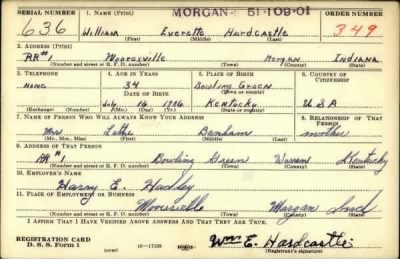 SERIAL NUMBER 1. NAME (Print) MORGAN- 51-109-01 ORDER NUMBER
636 William Everette Hardcastle 349
(First) (Middle) (Last)
2. ADDRESS (Print)
RR#1 Mooresville Morgan Indiana
(Number and street or R. F. D. number) (Town) (County) (State)
3. TELEPHONE 4. AGE IN YEARS 5. PLACE OF BIRTH 6. COUNTRY OF CITIZENSHIP
none 34 Bowling Green
DATE OF BIRTH (Town or county)
July 16 1906 Kentucky U S A
(Exchange) (Number) (Mo.) (Day) (Yr.) (State or country)
7. NAME OF PERSON WHO WILL ALWAYS KNOW YOUR ADDRESS 8. RELATIONSHIP OF THAT PERSON
Mrs. Banham mother
(Mr., Mrs., Miss) (First) (Middle) (Last)
9. ADDRESS OF THAT PERSON
RR#1 Bowling Green Warren Kentucky
(Number and street or R. F. D. number) (Town) (County) (State)
10. EMPLOYER'S NAME
Harry E. Hadley
11. PLACE OF EMPLOYMENT OR BUSINESS
Mooresville Morgan Ind
(Number and street or R. F. D. number) (Town) (County) (State)
I AFFIRM THAT I HAVE VERIFIED ABOVE ANSWERS AND THAT THEY ARE TRUE.
REGISTRATION CARD
D. S. S. Form 1 16—17105 Wm E. Hardcastle
(Registrant's signature)